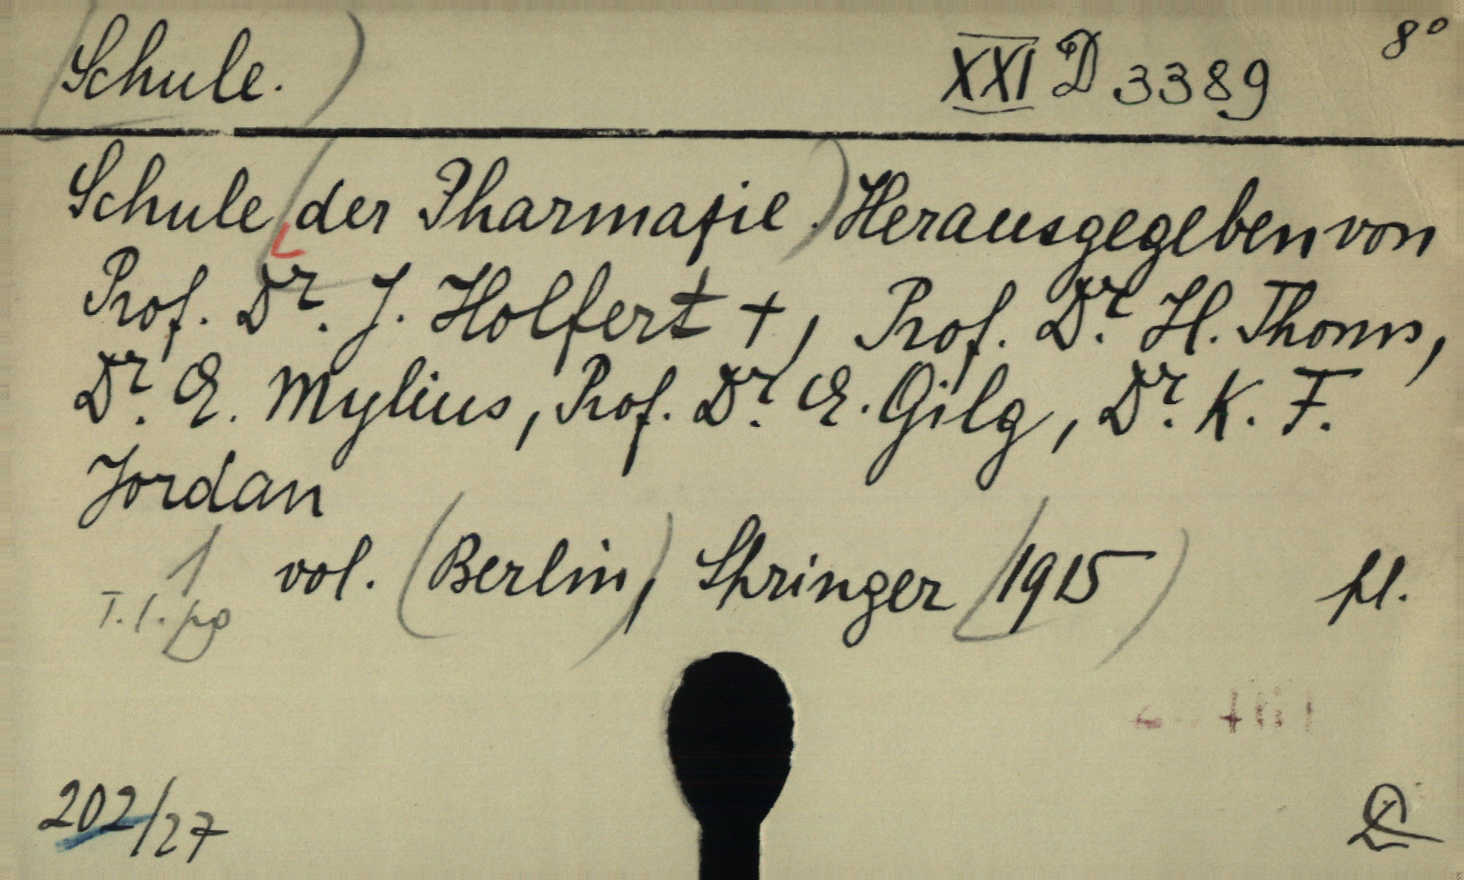 Schule. XXI D 3389 8°
Schule der Pharmazie. Herausgegeben von
Prof. Dr. J. Holfert +, Prof. Dr. H. Thoms,
Dr. E. Mylius, Prof. Dr. E. Gilg, Dr. K. F.
Jordan
1 vol. (Berlin), Springer (1915) pl.
202/27